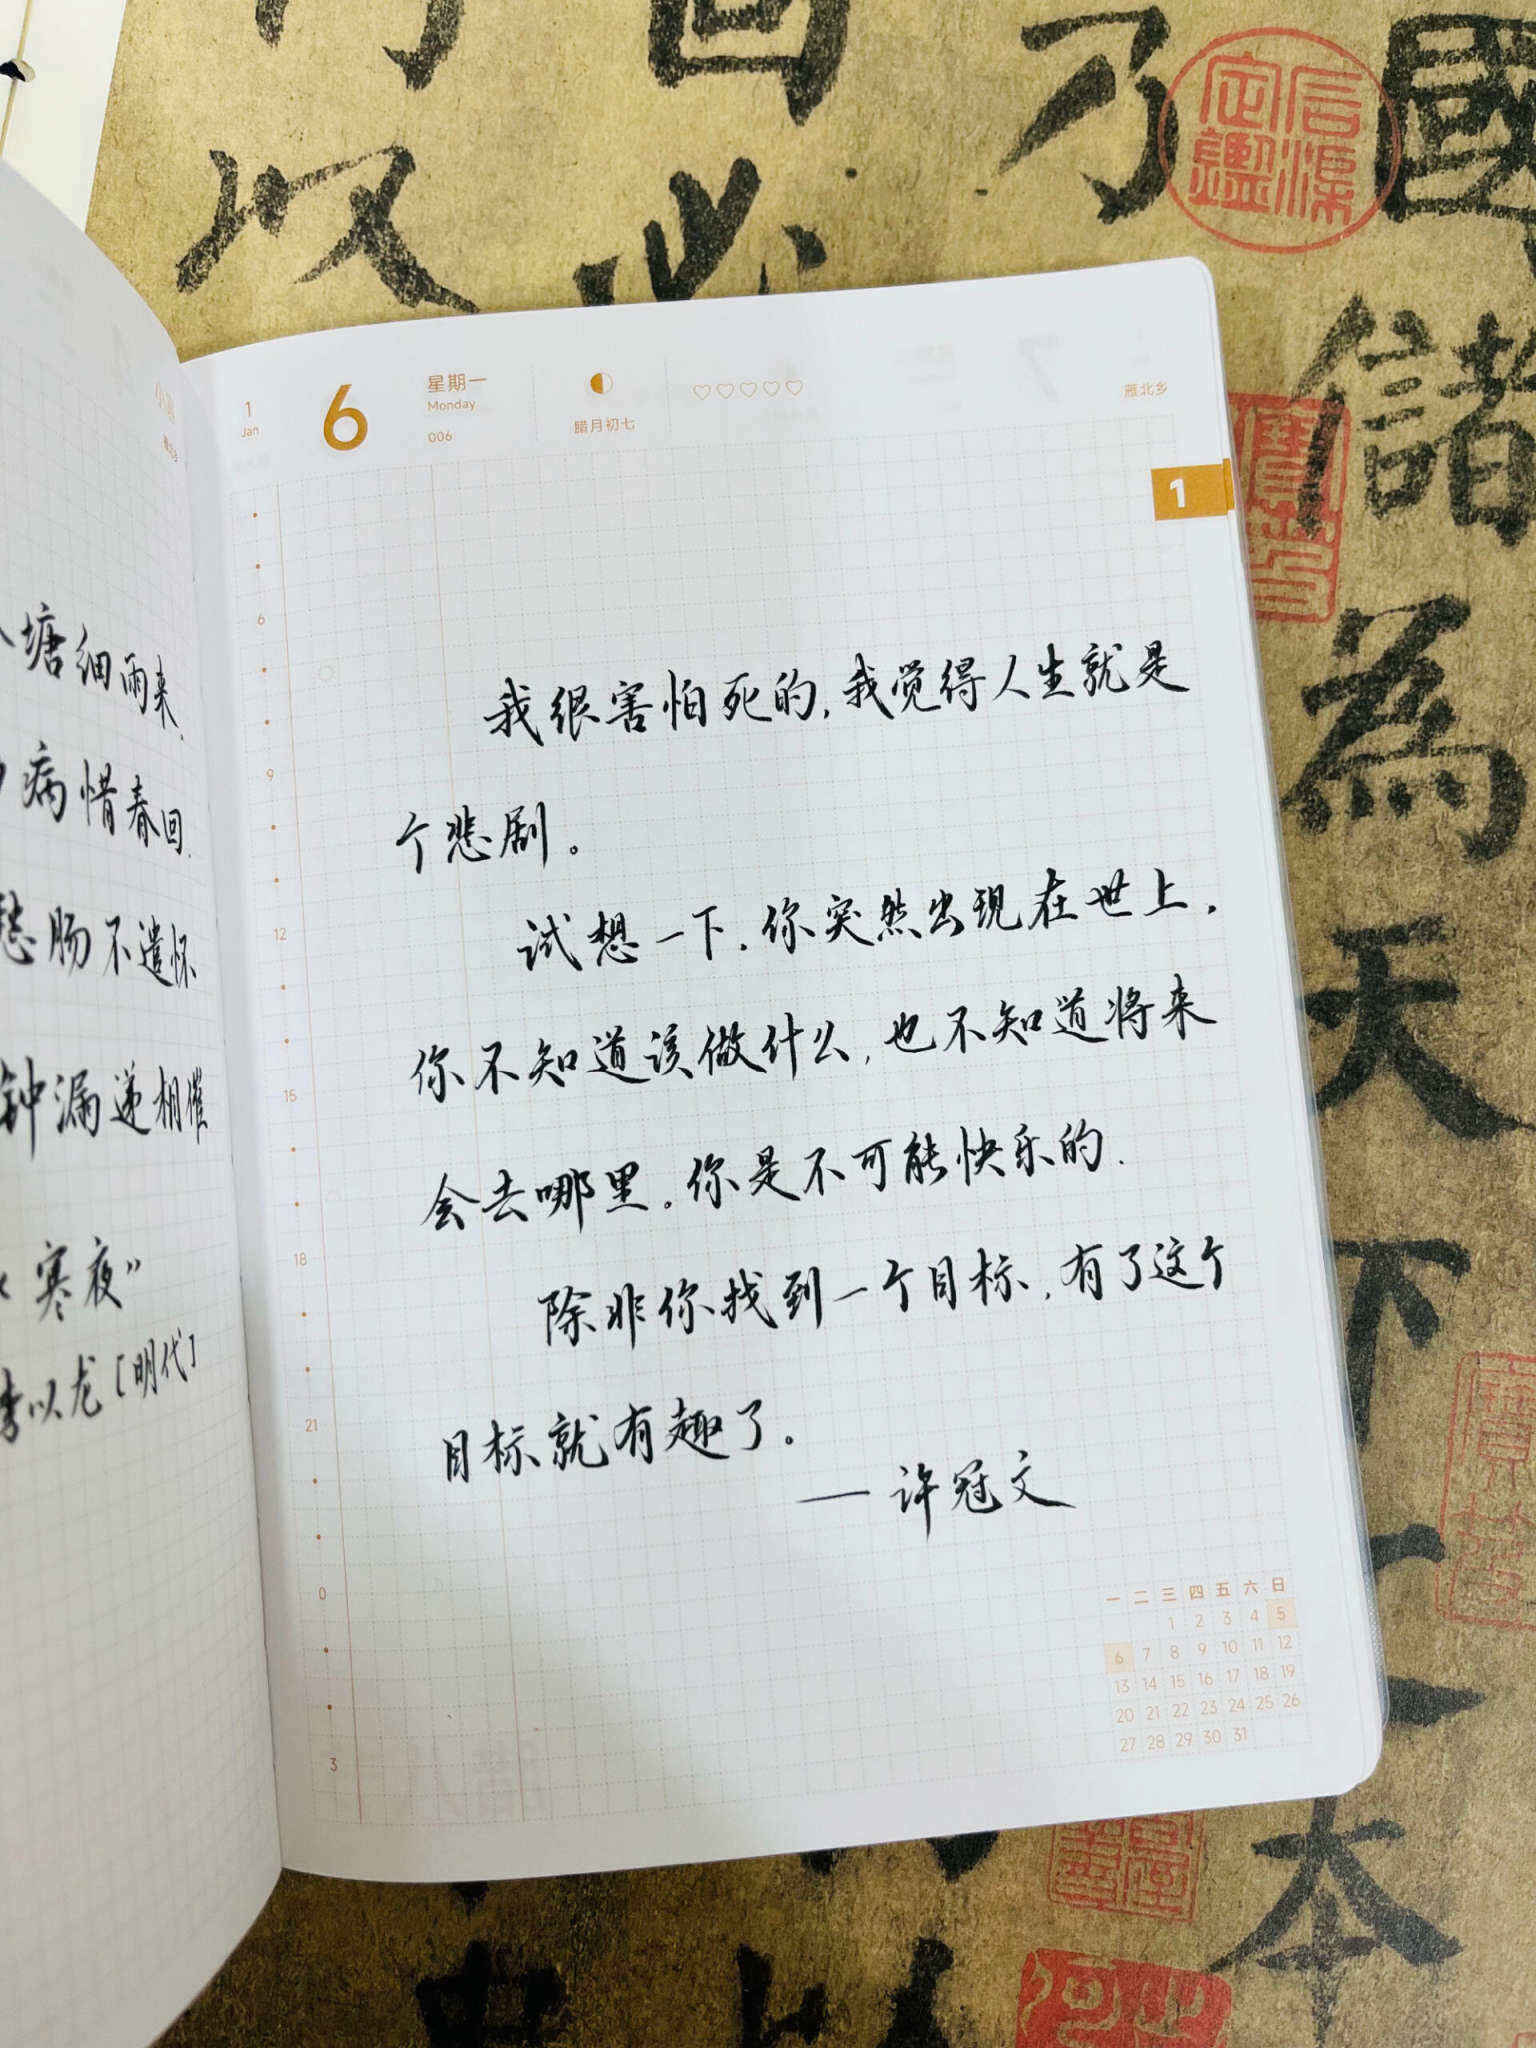 塘细雨来,
病惜春回.
愁肠不遣怀
钟漏递相催
寒夜”
李以龙[明代]
1
Jan
6
星期一
Monday
006
腊月初七
雁北乡
1
6
9
12
15
18
21
0
3
我很害怕死的,我觉得人生就是
个悲剧。
试想一下,你突然出现在世上,
你不知道该做什么,也不知道将来
会去哪里。你是不可能快乐的.
除非你找到一个目标,有了这个
目标就有趣了。
——许冠文
一 二 三 四 五 六 日
1 2 3 4 5
6 7 8 9 10 11 12
13 14 15 16 17 18 19
20 21 22 23 24 25 26
27 28 29 30 31
國
乃
諸
為
天
下
本
以
必